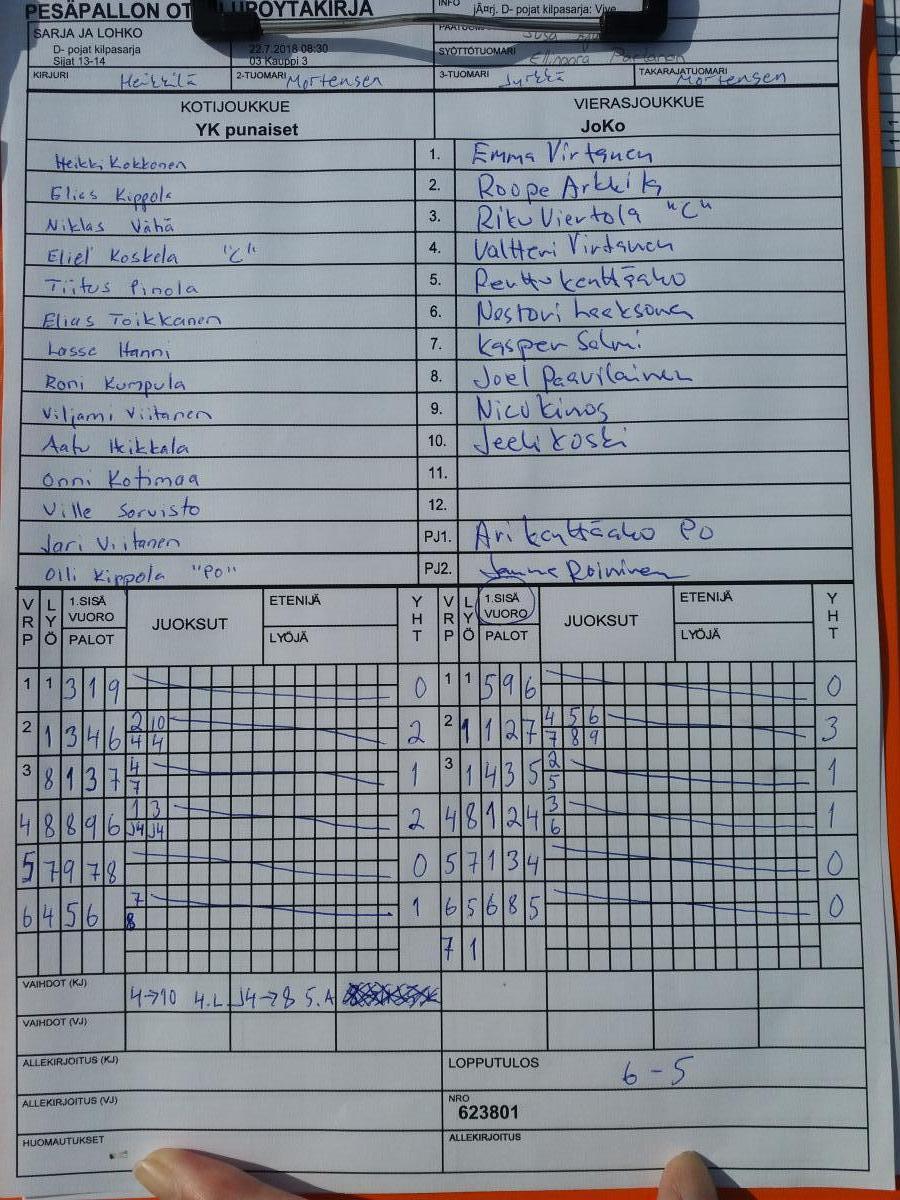 PESÄPALLON OT LUPÖYTÄKIRJA
INFO
jÃ¤rj. D- pojat kilpasarja: Vive
SARJA JA LOHKO
D- pojat kilpasarja
Sijat 13-14
22.7.2018 08:30
03 Kauppi 3
SYÖTTÖTUOMARI
KIRJURI Heikkilä
2-TUOMARI Mortensen
3-TUOMARI Jyrkkä
TAKARAJATUOMARI Mortensen
KOTIJOUKKUE
YK punaiset
VIERASJOUKKUE
JoKo
Heikki Kokkonen 1. Emma Virtanen
Elias Kippola 2. Roope Arkkila
Niklas Vähä 3. Riku Viertola "C"
Eliel Koskela "C" 4. Valtteri Virtanen
Tiitus Pinola 5. Renttu Kenttäaho
Elias Toikkanen 6. Nestori Laaksonen
Lasse Hanni 7. Kasper Salmi
Roni Kumpula 8. Joel Paavilainen
Viljami Viitanen 9. Nico Kinos
Aatu Heikkala 10. Jeeli Koski
Onni Kotimaa 11.
Ville Sorvisto 12.
Jari Viitanen PJ1. Ari Kenttäaho PO
Olli Kippola "PO" PJ2. Janne Roininen
VRP LYÖ 1.SISÄ VUORO PALOT JUOKSUT ETENIJÄ LYÖJÄ YHT VRP LYÖ 1.SISÄ VUORO PALOT JUOKSUT ETENIJÄ LYÖJÄ YHT
1 1 3 1 9 0 1 1 5 9 6 0
2 1 3 4 6 2 10 2 2 1 1 2 7 4 5 6 3
4 4 7 8 9
3 8 1 3 7 4 1 3 1 4 3 5 2 1
7 5
4 8 8 9 6 1 3 2 4 8 1 2 4 3 1
J4 J4 6
5 7 9 7 8 0 5 7 1 3 4 0
6 4 5 6 7 1 6 5 6 8 5 0
8
7 1
VAIHDOT (KJ) 4→10 4.L J4→8 5.A
VAIHDOT (VJ)
ALLEKIRJOITUS (KJ)
LOPPUTULOS 6 - 5
ALLEKIRJOITUS (VJ)
NRO
623801
HUOMAUTUKSET
ALLEKIRJOITUS